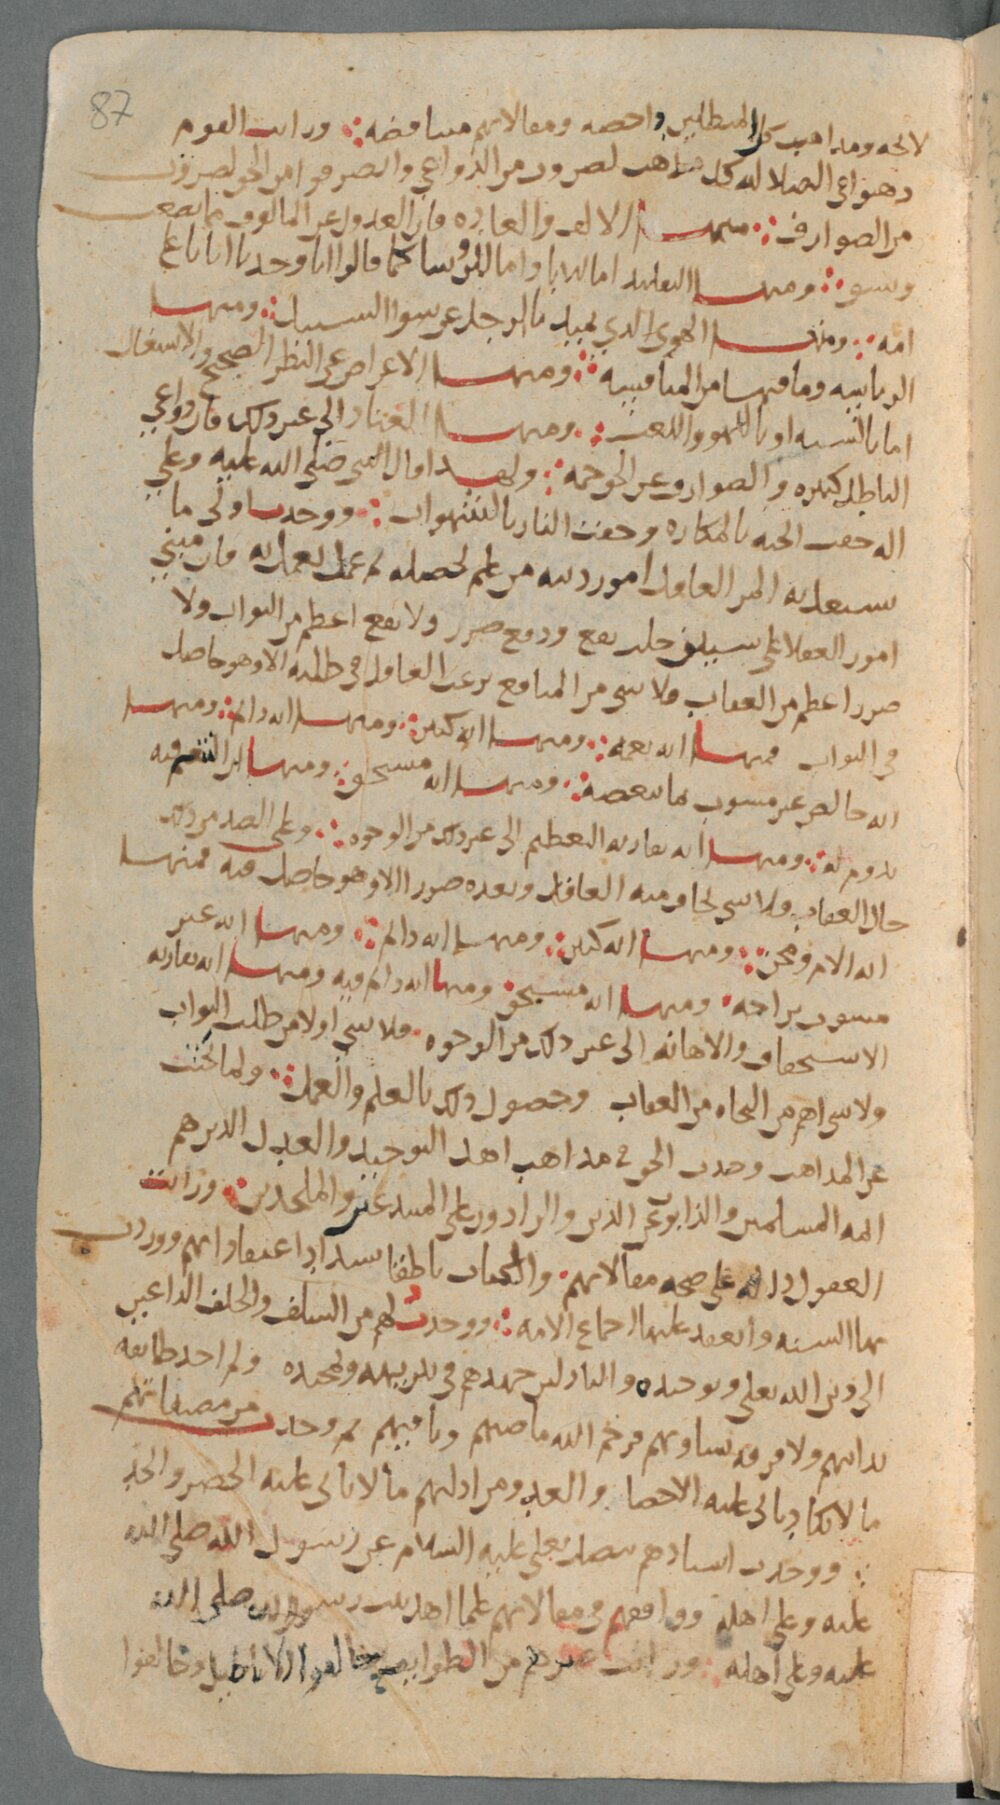 87
لائحه ومذاهب كل المبطلين داحضه ومقالاتهم متناقضه ورايت القوم
دهتهم دواعي الضلاله فكل مذاهب لصروف من الدواعي وانصرفوا من الحق لصروف
من الصوارف منها الالف والعاده فان العدول عن المالوف مما يصعب
ويشق ومنها التقليد اما للابا واما للروسا كما قالوا انا وجدنا ابانا على
امه ومنها الهوى الذي يميل بالرجل عن سوا السبيل ومنها
الرياسه وما فيها من المنافسه ومنها الاعراض عن النظر الصحيح والاشتغال
اما بالشبه او باللهو واللعب ومنها العناد الى غير ذلك فان دواعي
الباطل كثيره والصوارف عن الحق جمه ولهذا قال النبي صلى الله عليه وعلى
اله حفت الجنه بالمكاره وحفت النار بالشهوات ووجدت اولى ما
يشتغل به المر العاقل امور دينه من علم لحصله ثم عمل يعمل به فان مبنى
امور العقلا على سببين جلب نفع ودفع ضرر ولا نفع اعظم من الثواب ولا
ضرر اعظم من العقاب فلا شي من المنافع يرغب العاقل في طلبه الا وهو حاصل
في الثواب فمنها انه نعمه ومنها انه كثير ومنها انه دائم ومنها
انه خالص غير مشوب بما ينغصه ومنها انه مستحق ومنها ان التنعم فيه
يدوم له ومنها انه يقارنه التعظيم الى غير ذلك من الوجوه وعلى الضد من ذلك
حال العقاب فلا شي يخاف منه العاقل ويعده ضررا الا وهو حاصل فيه فمنها
انه الام ومحن ومنها انه كثير ومنها انه دائم ومنها انه غير
مشوب براحه ومنها انه مستحق ومنها انه دائم فيه ومنها انه يقارنه
الاستخفاف والاهانه الى غير ذلك من الوجوه فلا شي اولى من طلب الثواب
ولا شي اهم من النجاه من العقاب وحصول ذلك بالعلم والعمل ولما بحثت
عن المذاهب وجدت الحق في مذاهب اهل التوحيد والعدل الذين هم
ائمه المسلمين والذابون عن الدين والرادون على المبتدعين والملحدين ورايت
العقول داله على صحه مقالاتهم والكتاب ناطقا بسداد اعتقاداتهم ووردت
بها السنه وانعقد عليها اجماع الامه ووجدت لهم من السلف والخلف الداعين
الى دين الله تعلى وتوحيده والباذلين جهدهم في تنزيهه وتمجيده ولم اجد طائفه
تدانيهم ولا فرقه تساويهم فرحم الله ماضيهم وباقيهم ثم وجدت من مصنفاتهم
ما لا يكاد ياتي عليه الاحصا والعد ومن ادلتهم ما لا ياتي عليه الحصر والحد
ووجدت اسنادهم يتصل بعلي عليه السلام عن رسول الله صلى الله
عليه وعلى اهله ووافقهم في مقالاتهم علما اهل بيت رسول الله صلى الله
عليه وعلى اهله ورايت غيرهم من الطوائف خالفوا الاباطيل وخالفوا